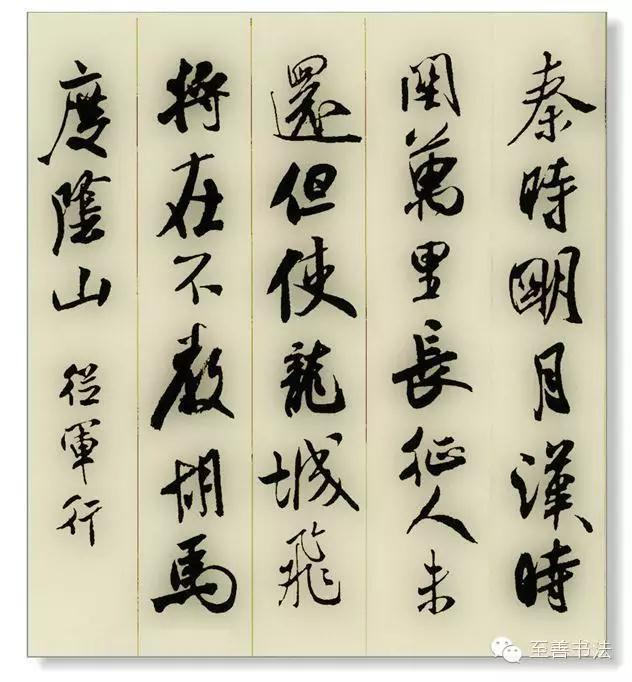 秦時明月漢時
関萬里長征人未
還但使龍城飛
将在不教胡馬
度陰山 從軍行
至善书法